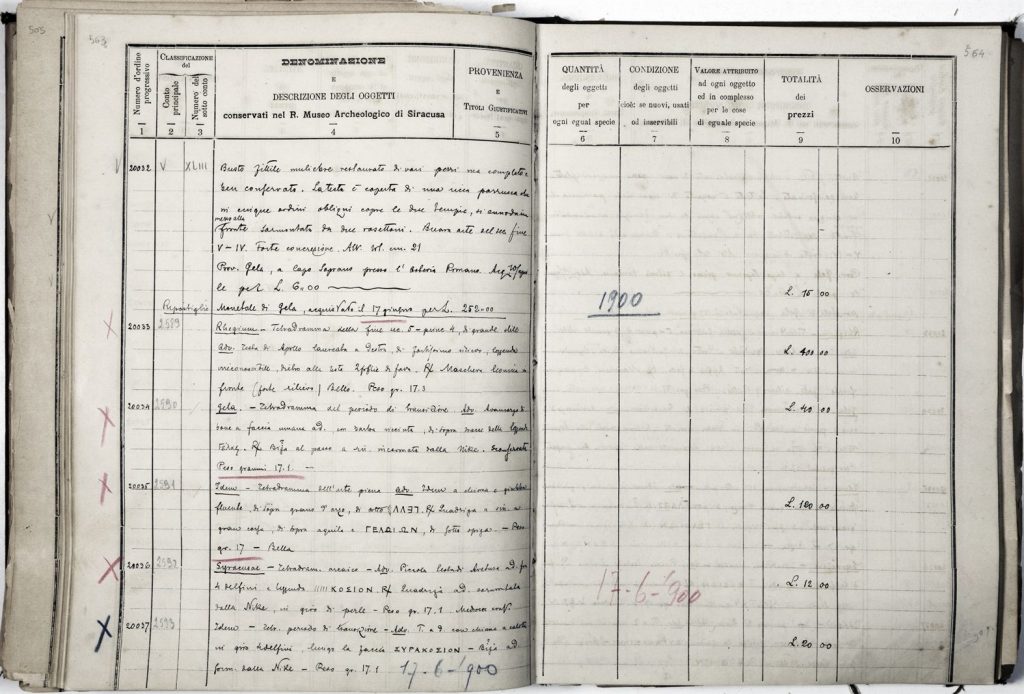 505
563
564
Numero d'ordine progressivo
CLASSIFICAZIONE
del
Conto principale
Numero del sotto conto
DENOMINAZIONE
E
DESCRIZIONE DEGLI OGGETTI
conservati nel R. Museo Archeologico di Siracusa
PROVENIENZA
E
TITOLI GIUSTIFICATIVI
1 2 3 4 5
QUANTITÀ
degli oggetti
per
ogni egual specie
CONDIZIONE
degli oggetti
cioè: se nuovi, usati
od inservibili
VALORE ATTRIBUITO
ad ogni oggetto
ed in complesso
per le cose
di eguale specie
TOTALITÀ
dei
prezzi
OSSERVAZIONI
6 7 8 9 10
20032 V XLIII Busto fittile muliebre restaurato di vari pezzi ma completo e
ben conservato. La testa è coperta di una ricca parrucca che
in cinque ordini obliqui copre le due tempie, si annoda in
mezzo alla
fronte sormontata da due rosettoni. Buona arte del sec. fine
V - IV. Forte concrezione. Alt. tot. cm. 21
Prov. Gela, a Capo Soprano presso l'Osteria Romano. Acq.
le per L. 6.00
L. 15 00
Ripostiglio Monetale di Gela, acquistato il 17 giugno per L. 252-00
1900
20033 2589 Rhegium - Tetradramma della fine sec. 5 - princ. 4, di grande stile
Adv. Testa di Apollo laureata a destra, di fortissimo rilievo, leggenda
irriconoscibile, dietro alla testa foglie di Rf. Maschera leonina di
fronte (forte rilievo) Bello. Peso gr. 17.3
L. 400 00
20034 2590 Gela. - Tetradramma del periodo di transizione. Adv. Avancorpo di
bove a faccia umana ad. con barba, di sopra tracce della leggenda
Rf. Biga al passo a sin. incoronata dalla Nike.
Peso grammi 17.1. -
L. 40 00
20035 2591 Idem - Tetradramma dell'arte piena Adv. Idem a destra
fluente, di sopra grano d'orzo, di sotto Rf. Quadriga a sin. a
gran corsa, di sopra aquila e ΓΕΛΩΙΩΝ, di sotto spiga. - Peso
gr. 17 - Bella
L. 180 00
20036 2592 Syracusae - Tetradram. arcaico - Adv. Piccola testa di Aretusa ad. fra
4 delfini e leggenda ΚΟΣΙΟΝ. Rf. Quadriga ad. sormontata
dalla Nike, in giro di perle - Peso gr. 17.1.
17-6-'900
L. 12 00
20037 2593 Idem - Tetr. periodo di transizione - Adv. T. a d. con chioma
in giro 4 delfini, lungo la faccia ΣΥΡΑΚΟΣΙΟΝ - Biga ad.
dalla Nike - Peso gr. 17.1 17-6-'900
L. 20 00